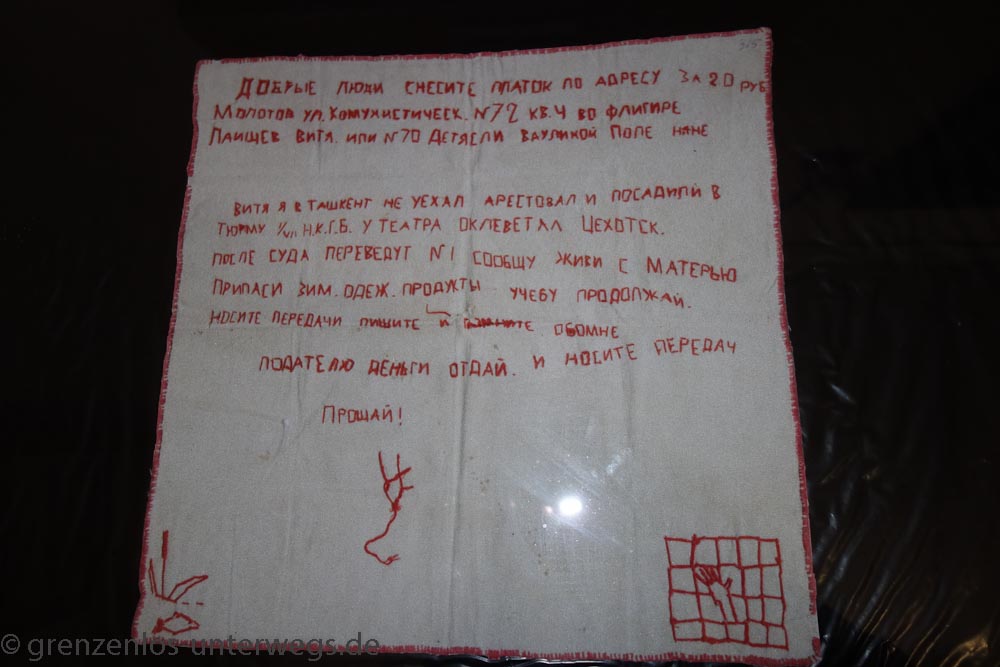 ДОБРЫЕ ЛЮДИ СНЕСИТЕ ПЛАТОК ПО АДРЕСУ ЗА 20 РУБ
МОЛОТОВ УЛ. КОМУНИСТИЧЕСК. №72 КВ. Ч ВО ФЛИГИРЕ
ПАИЩЕВ ВИТЯ. ИЛИ №70 ДЕТЯСЛИ ВАУЛИНОЙ ПОЛЕ НЯНЕ
ВИТЯ Я В ТАШКЕНТ НЕ УЕХАЛ АРЕСТОВАЛ И ПОСАДИЛИ В
ТЮРМУ 1/VII Н.К.Г.Б. У ТЕАТРА ОКЛЕВЕТАЛ ЦЕХОТСК.
ПОСЛЕ СУДА ПЕРЕВЕДУТ №1 СООБЩУ ЖИВИ С МАТЕРЬЮ
ПРИПАСИ ЗИМ. ОДЕЖ. ПРОДУКТЫ УЧЕБУ ПРОДОЛЖАЙ.
НОСИТЕ ПЕРЕДАЧИ ПИШИТЕ И ОБОМНЕ
ПОДАТЕЛЮ ДЕНЬГИ ОТДАЙ. И НОСИТЕ ПЕРЕДАЧ
ПРОЩАЙ!
© grenzenlos-unterwegs.de